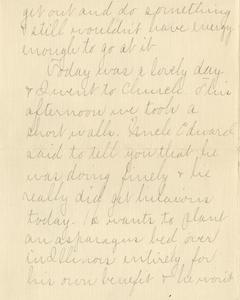 get out and do something
& still wouldn't have energy
enough to go at it.
Today was a lovely day
& I went to Church. This
afternoon we took a
short walk. Uncle Edward
said to tell you that he
was doing finely & he
really did get hilarious
today. He wants to plant
an asparagus bed over
in Illinois entirely for
his own benefit & he won't